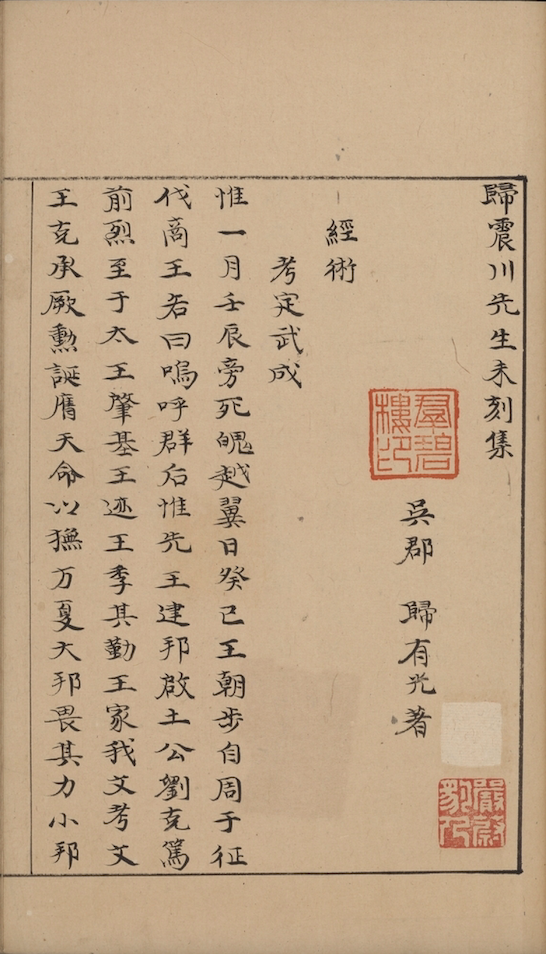 歸震川先生未刻集
嚴蔚
豹人
吳郡　歸有光著
羣碧
樓印
經術
考定武成
惟一月壬辰旁死魄越翼日癸巳王朝步自周于征
伐商王若曰嗚呼群后惟先王建邦啟土公劉克篤
前烈至于太王肇基王迹王季其勤王家我文考文
王克承厥勳誕膺天命以撫方夏大邦畏其力小邦